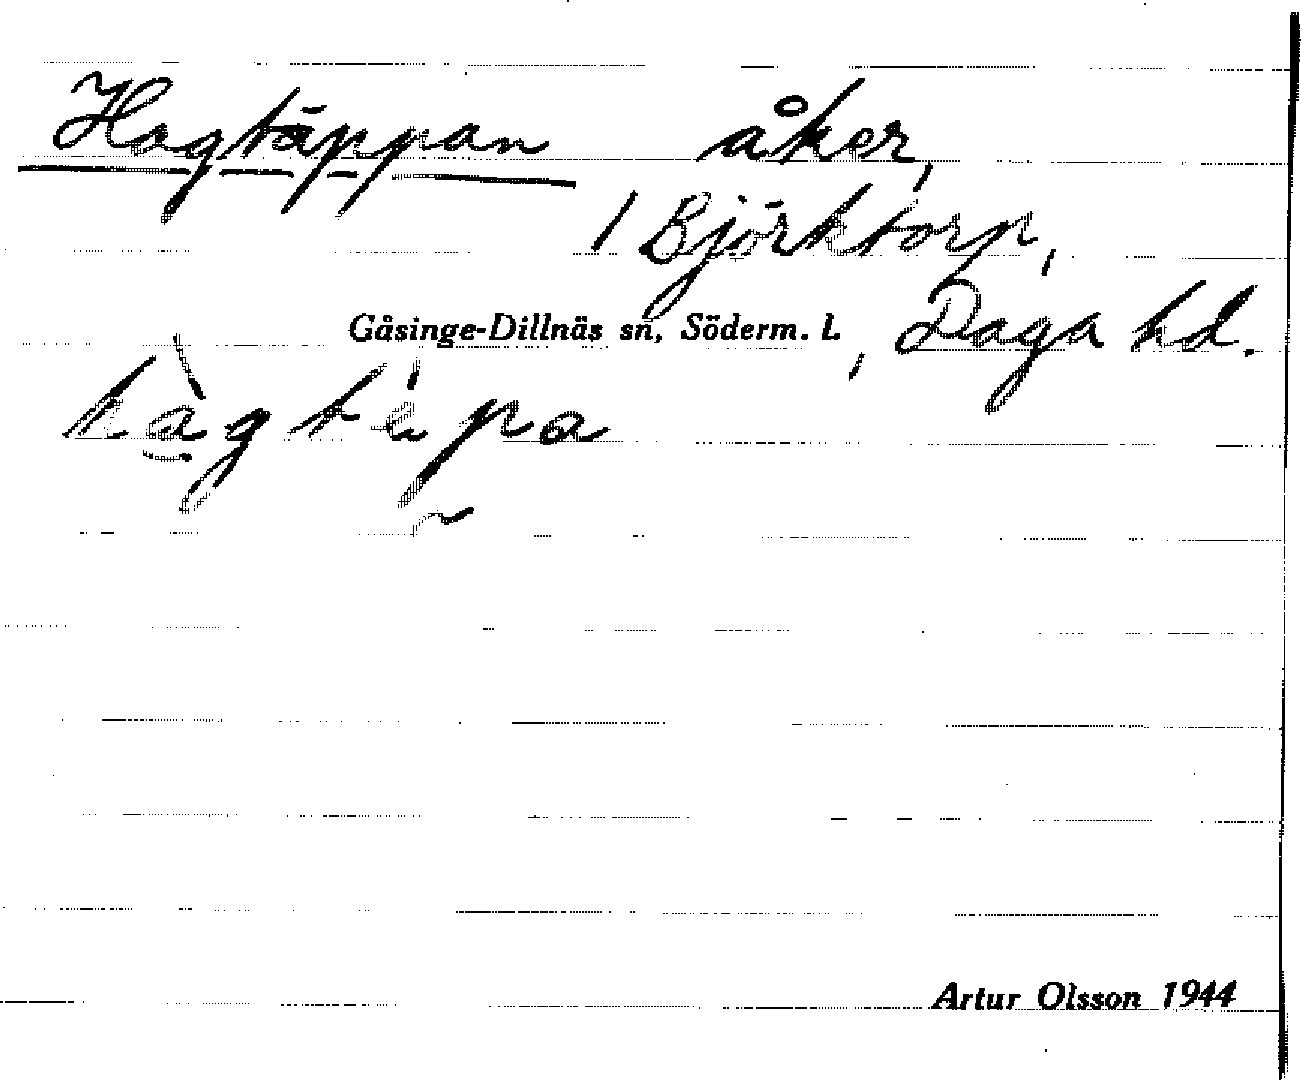 Hagtäppan åker,
/ Björktorp,
Gåsinge-Dillnäs sn, Söderm. l. , Daga hd.
hàgtèpa
Artur Olsson 1944